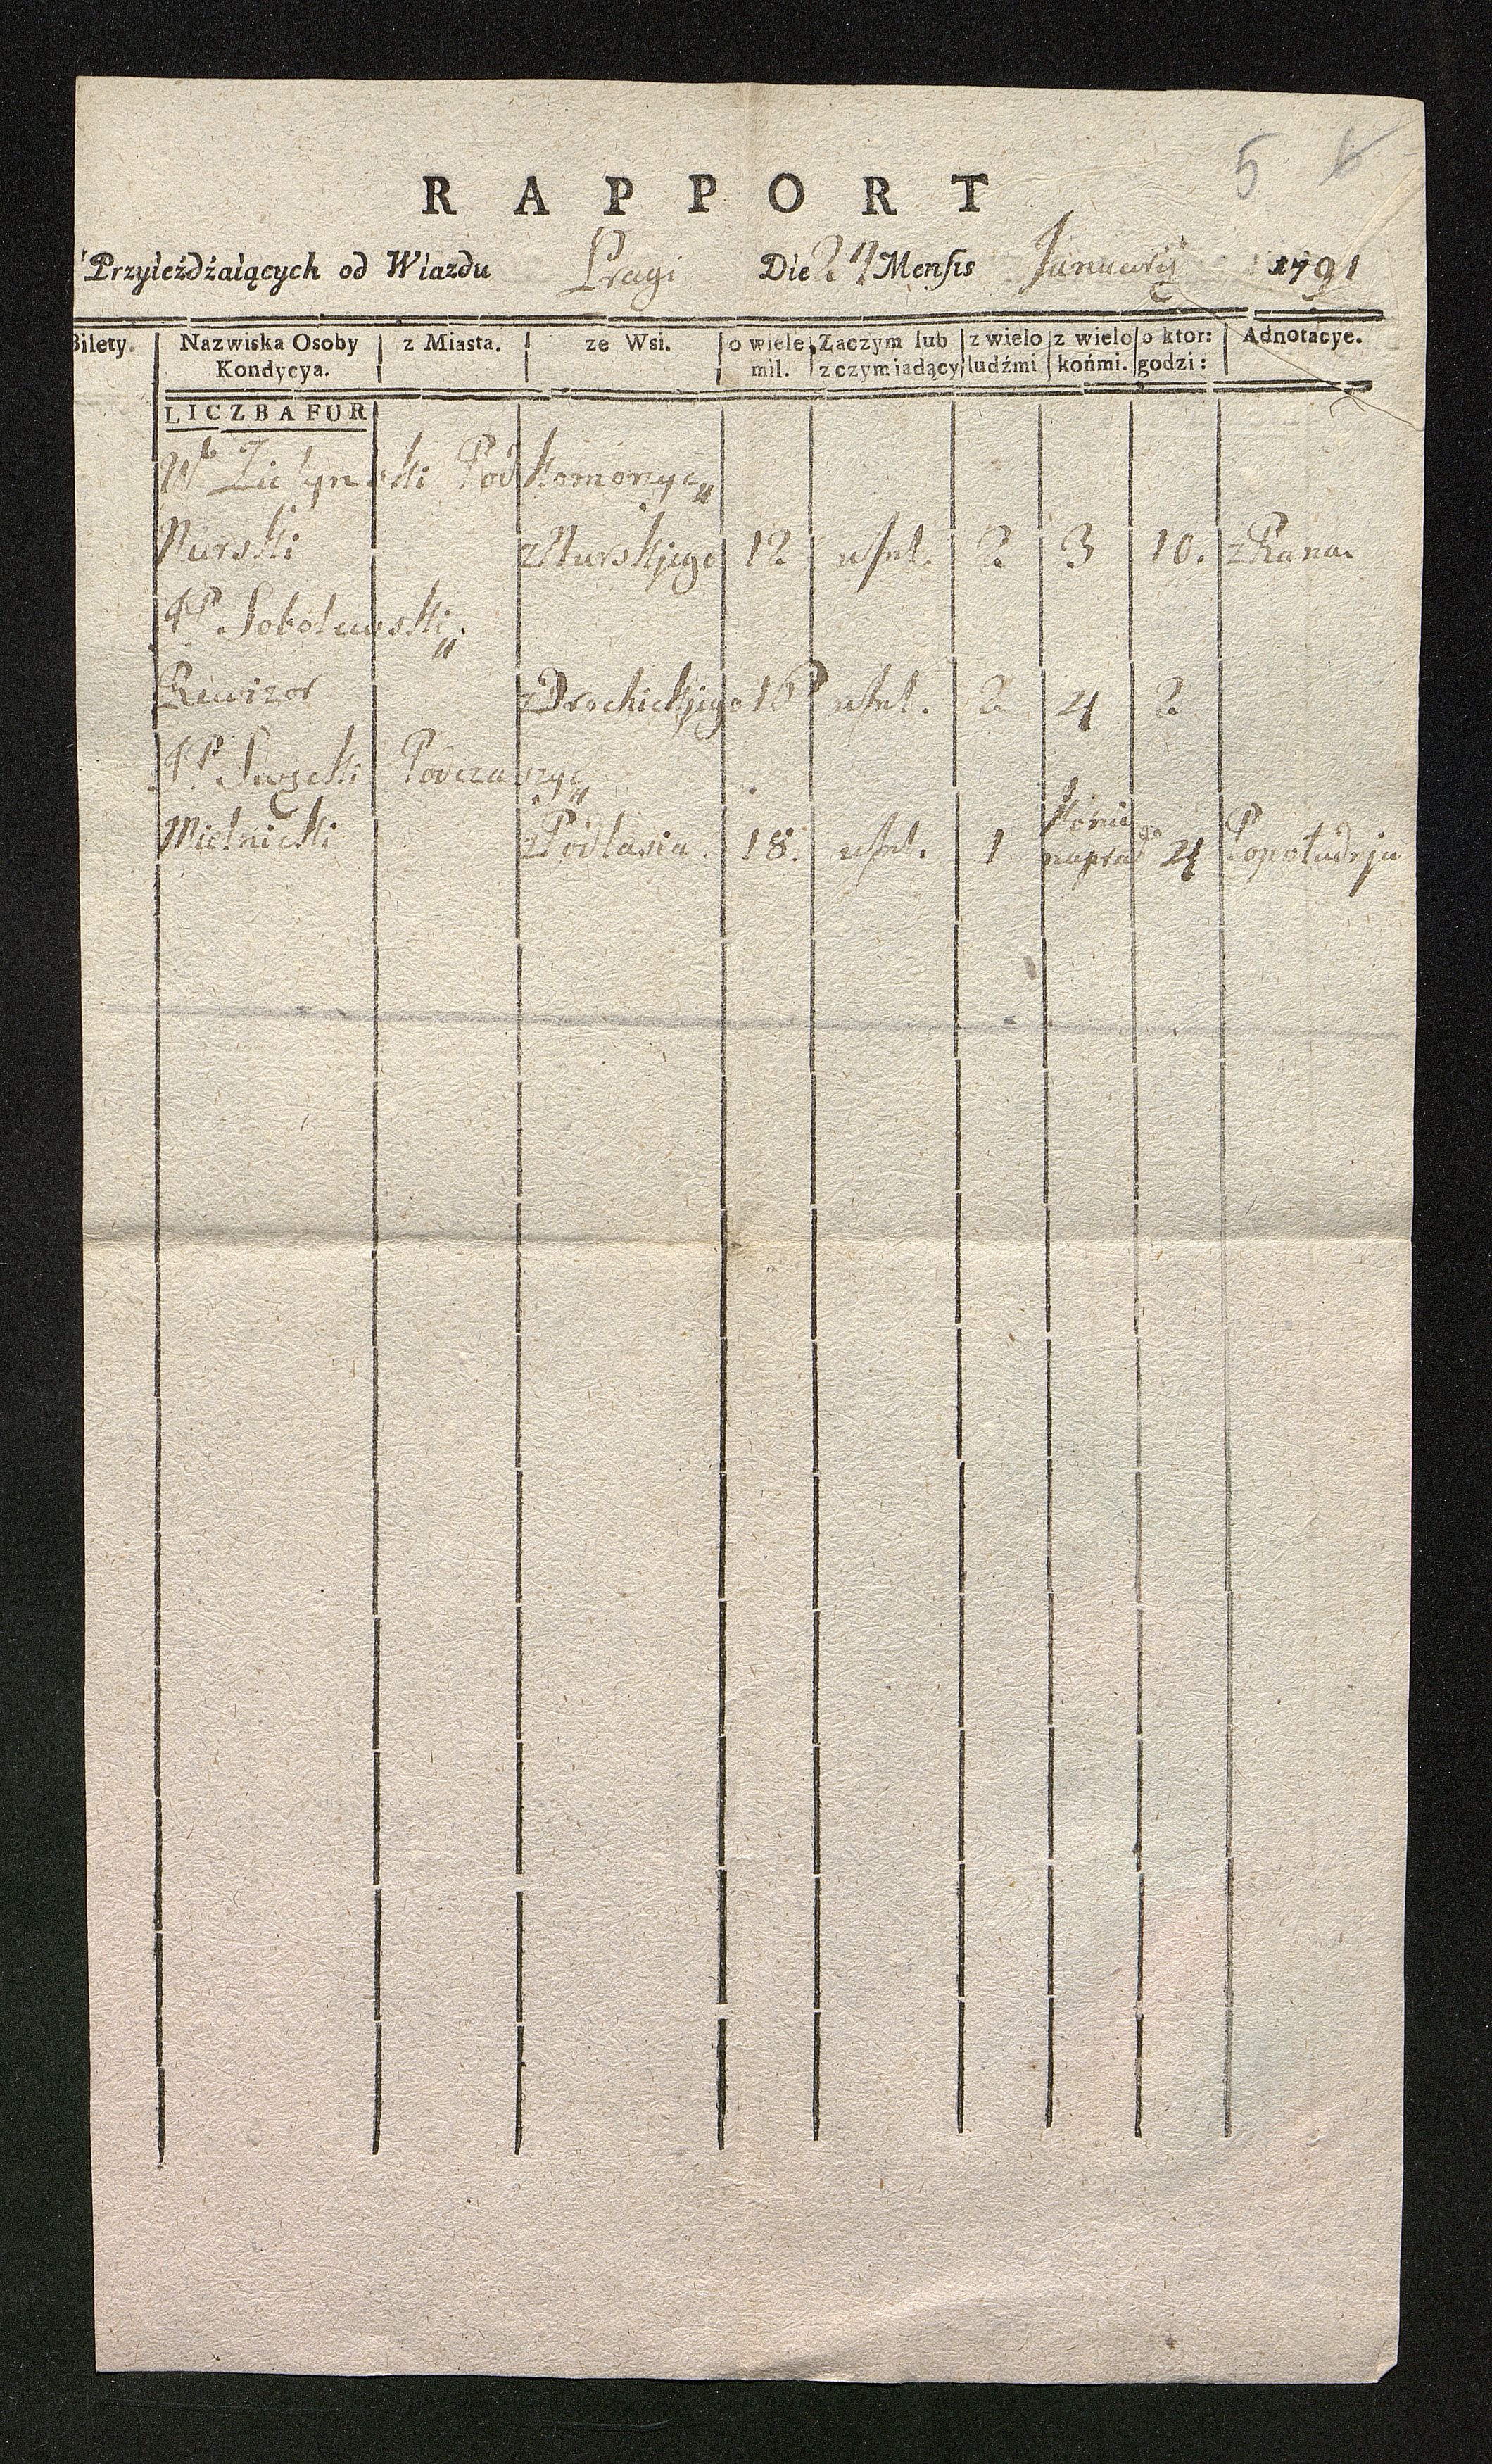 5
RAPPORT
Przyieżdżaiących od Wiazdu Pragi Die 27 Mensis Januarij 1791
Bilety. Nazwiska Osoby Kondycya. z Miasta. ze Wsi. o wiele mil. Zaczym lub z czym iadący z wielo ludźmi z wielo końmi. o ktor: godzi: Adnotacye.
LICZBA FUR
Podkomorzyc
Nurski z Nurskjego 12 2 3 10. z Rana.
JP. Sobolewski
Rewizor z Drochickjego 16 2 4 2
JP. Podczaszyc
Mielnicki z Podlasia. 18. 1 4 Popołudnju